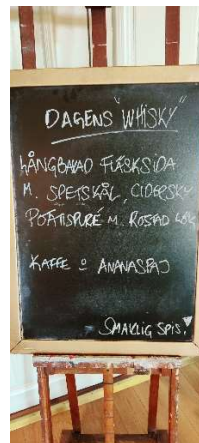 DAGENS "WHISKY"
LÅNGBAKAD FLÄSKSIDA
M. SPETSKÅL, CIDERSKY
POTATISPURÉ M. ROSTAD LÖK
KAFFE O ANANASPAJ
SMAKLIG SPIS!